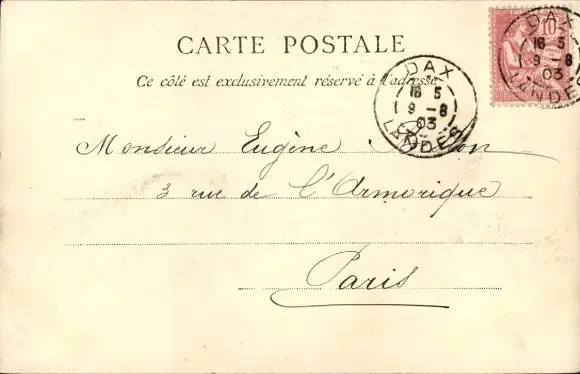 CARTE POSTALE
Ce côté est exclusivement réservé à l'adresse
DAX
16 5
9 - 8
03
LANDES
DAX
16 5
9 - 8
03
LANDES
10
Monsieur Eugène
3 rue de l'Armorique
Paris